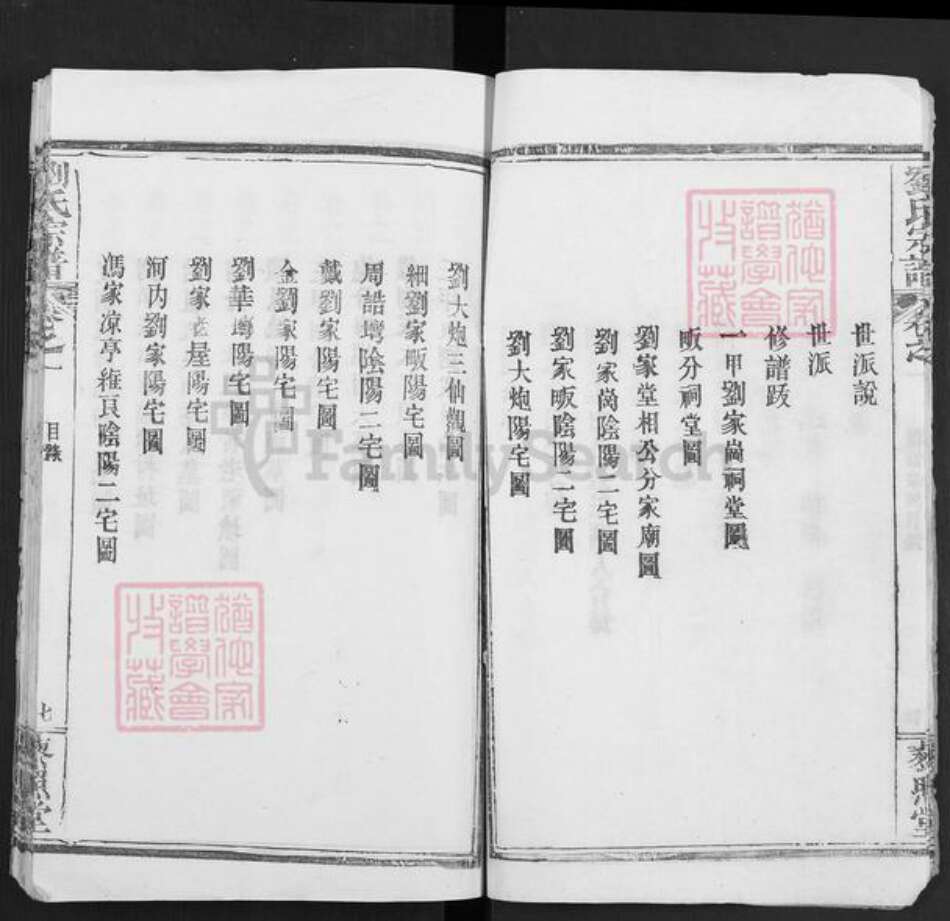 劉氏宗譜
卷之一
世派說
世派
修譜跋
一甲劉家崗祠堂圖
畈分祠堂圖
劉家堂相公分家廟圖
劉家崗陰陽二宅圖
劉家畈陰陽二宅圖
劉大炮陽宅圖
劉大炮三仙觀圖
細劉家畈陽宅圖
周誥塆陰陽二宅圖
戴劉家陽宅圖
金劉家陽宅圖
劉華塆陽宅圖
劉家老屋陽宅圖
河內劉家陽宅圖
馮家凉亭維頁陰陽二宅圖
劉氏宗譜
卷之一
目錄
七
照堂
照堂
譜學會
藏
譜學會
藏
FamilySearch